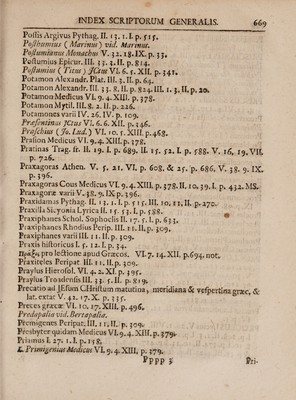 INDEX SCRIPTORUM GENERALIS. 669
Possis Argivus Pythag. II. 13. 1. I. p. 515.
Posthumius (Marinus) vid. Marinus.
Postumianus Monachus V. 32. 18. IX. p. 33.
Postumius Epicur. III. 33. 2. II. p. 814.
Postumius (Titus) JCtus VI. 6. 5. XII. p. 341.
Potamon Alexandr. Plat. III. 3. II. p. 64.
Potamon Alexandr. III. 33. 8. II. p. 824. III. 1. 3. II. p. 20.
Potamon Medicus VI. 9. 4. XIII. p. 378.
Potamon Mytil. III. 8. 2. II. p. 226.
Potamones varii IV. 26. IV. p. 109.
Præsentinus JCtus VI. 6. 6. XII. p. 346.
Praschius (Jo. Lud.) VI. 10. 5. XIII. p. 468.
Prasion Medicus VI. 9. 4. XIII. p. 378.
Pratinas Trag. fr. II. 19. I. p. 689. II. 15. 52. I. p. 588. V. 16, 19. VII.
p. 726.
Praxagoras Athen. V. 5. 21. VI. p. 608. & 25. p. 686. V. 38. 9. IX.
p. 396.
Praxagoras Cous Medicus VI. 9. 4. XIII. p. 378. II. 10. 39. I. p. 432. MS.
Praxagoræ varii V. 38. 9. IX p. 396.
Praxidamas Pythag. II. 13. 1. I. p. 515. III. 10. 12. II. p. 270.
Praxilla Sicyonia Lyrica II. 15. 53. I. p. 588.
Praxiphanes Schol. Sophoclis II. 17. 5. I. p. 633.
Praxiphanes Rhodius Perip. III. 11. II. p. 309.
Praxiphanes varii III. 11. II. p. 309.
Praxis historicus I. 5. 12. I. p. 34.
pro lectione apud Græcos. VI. 7. 14. XII. p. 694. not.
Praxiteles Peripat. III. 11. II. p. 309.
Praylus Hierosol. VI. 4. 2. XI. p. 395.
Praylus Troadensis III. 35. 5. II. p. 819.
Precatio ad JEsum CHristum matutina, meridiana & vespertina græc. &
lat. extat V. 42. 17. X. p. 335.
Preces græcæ VI. 10. 17. XIII. p. 496.
Predapalia vid. Bertapalia.
Premigenes Peripat. III. 11. II. p. 309.
Presbyter quidam Medicus VI. 9. 4. XIII. p. 379.
Priamus I. 27. 1. I. p. 158.
L. Primigenius Medicus VI. 9. 4. XIII. p. 379.
Pppp 3 Pri-